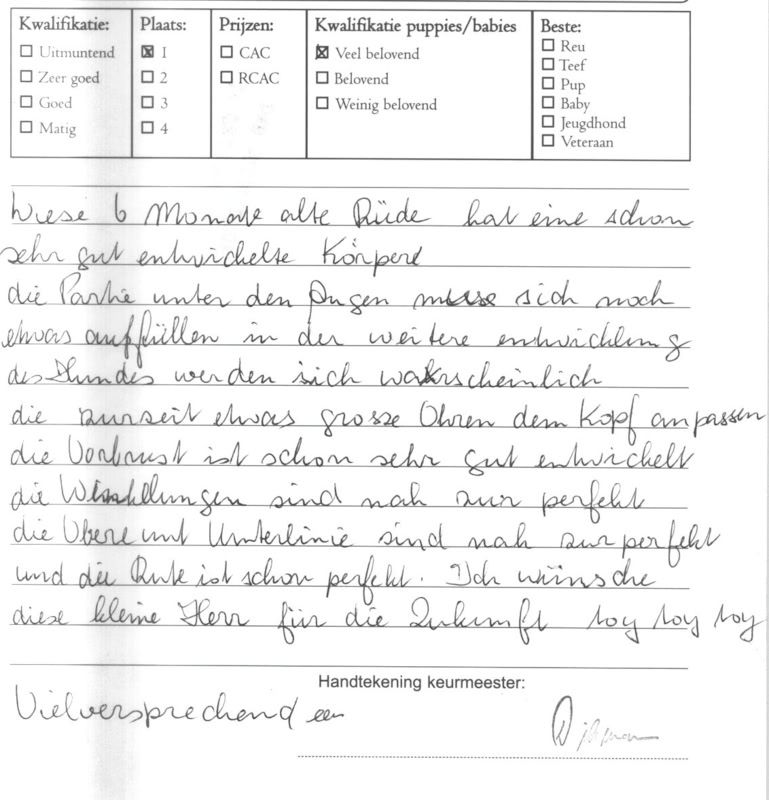 Kwalifikatie: Plaats: Prijzen: Kwalifikatie puppies/babies Beste:
☐ Uitmuntend ☒ 1 ☐ CAC ☒ Veel belovend ☐ Reu
☐ Zeer goed ☐ 2 ☐ RCAC ☐ Belovend ☐ Teef
☐ Goed ☐ 3 ☐ Weinig belovend ☐ Pup
☐ Matig ☐ 4 ☐ Baby
☐ Jeugdhond
☐ Veteraan
Diese 6 Monate alte Rüde hat eine schon
sehr gut entwickelte Körper
die Partie unter den Augen muss sich noch
etwas auffüllen in der weitere entwicklung
des Hundes werden sich wahrscheinlich
die zurseit etwas grosse Ohren dem Kopf anpassen
die Vorbrust ist schon sehr gut entwickelt
die Winkellungen sind nah zur perfekt
die Obere unt Unterlinie sind nah zur perfekt
und die Rute ist schon perfekt. Ich wünsche
diese kleine Herr für die Zukunft toy toy toy
Handtekening keurmeester:
Vielversprechend een